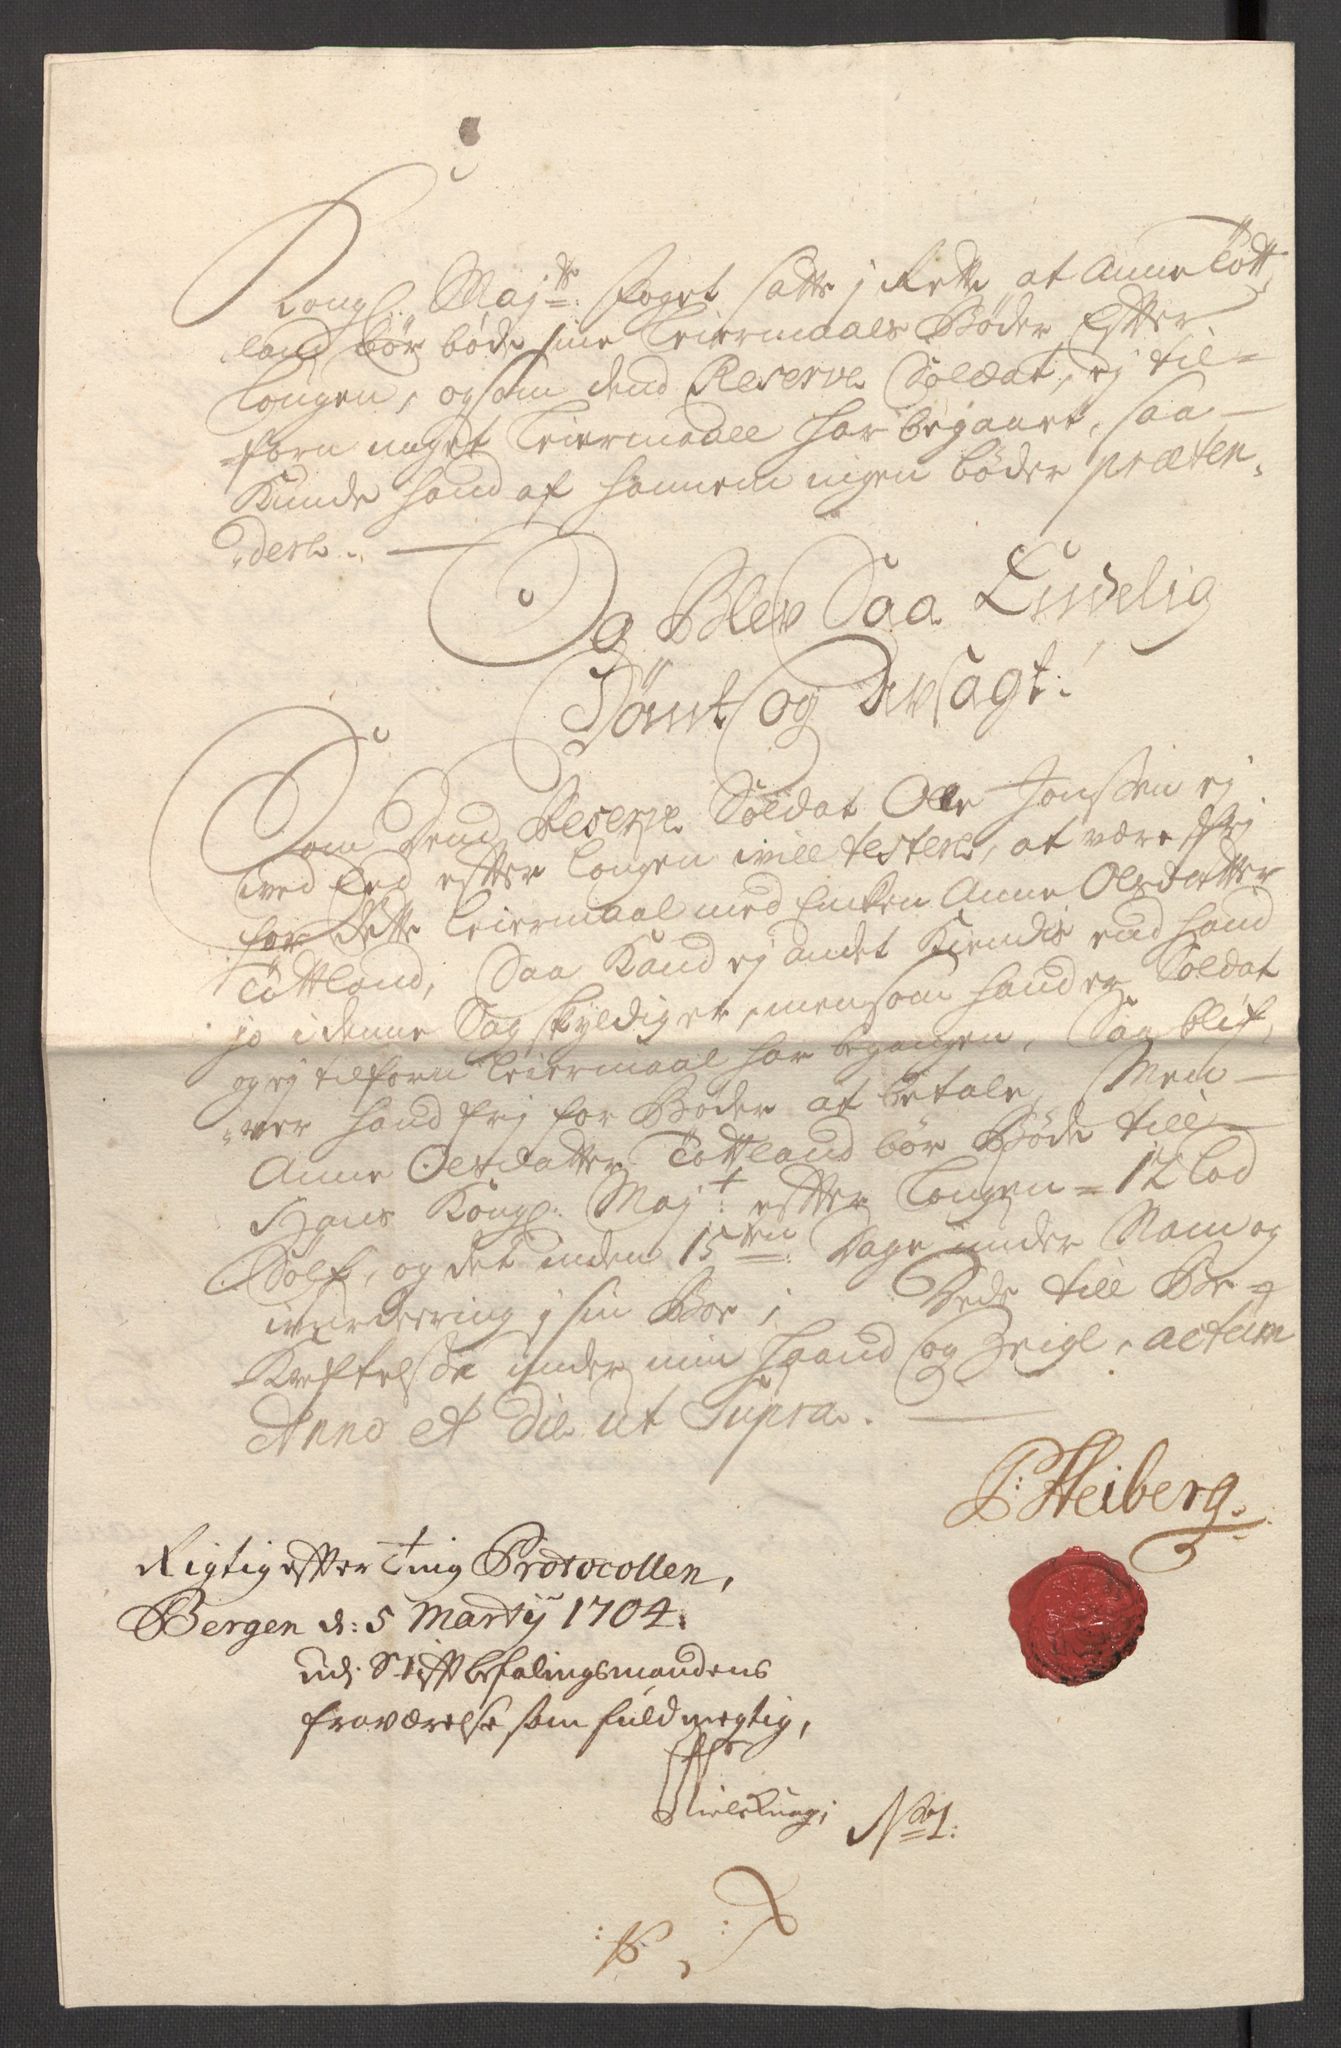 Kongl. Maj:ts foget satte j Rette at Anne Tött,
land bör böde sine Leiermaals Böder Efter
Lougen, og som dend Reserve Soldat, ej til=
=forn noget Leiermaall har begaaet, saa
Kunde hand af hannem ingen böder præten,
,dere. —
Da Blev Saa Endelig
Dömt og Avsagt:
Som Dend Reserve Soldat Ole Jonssen ej
ved Eed efter Lougen will testere, at være frj
for dette Leiermaal med Enken Anne Olesdatter
Töttland, Saa Kand ej andet Kiendis end hand
jo i denne Sag skyldig er, men som hand er Soldat
og ej tilforn Leiermaal har begangen, Saa blif,
,ver hand frj for Böder at betale, Men
Anne Olesdatter Töttland bör Böde till
Hans Kongl: Maj:t efter Lougen = 12 Lod
Sölf, og det inden 15ten Dage under Nam og
wurdeering j sin Boe; Dede till Be=
Kreftelse under min Haand og Zeigl, actum
Anno et Die ut Supra. —
P: Heiberg.
Rigtig efter Ting Protocollen,
Bergen d: 5 Martij 1704.
udj Stiftbefalingsmandens
fraværelse som fuldmegtig,
No 1: